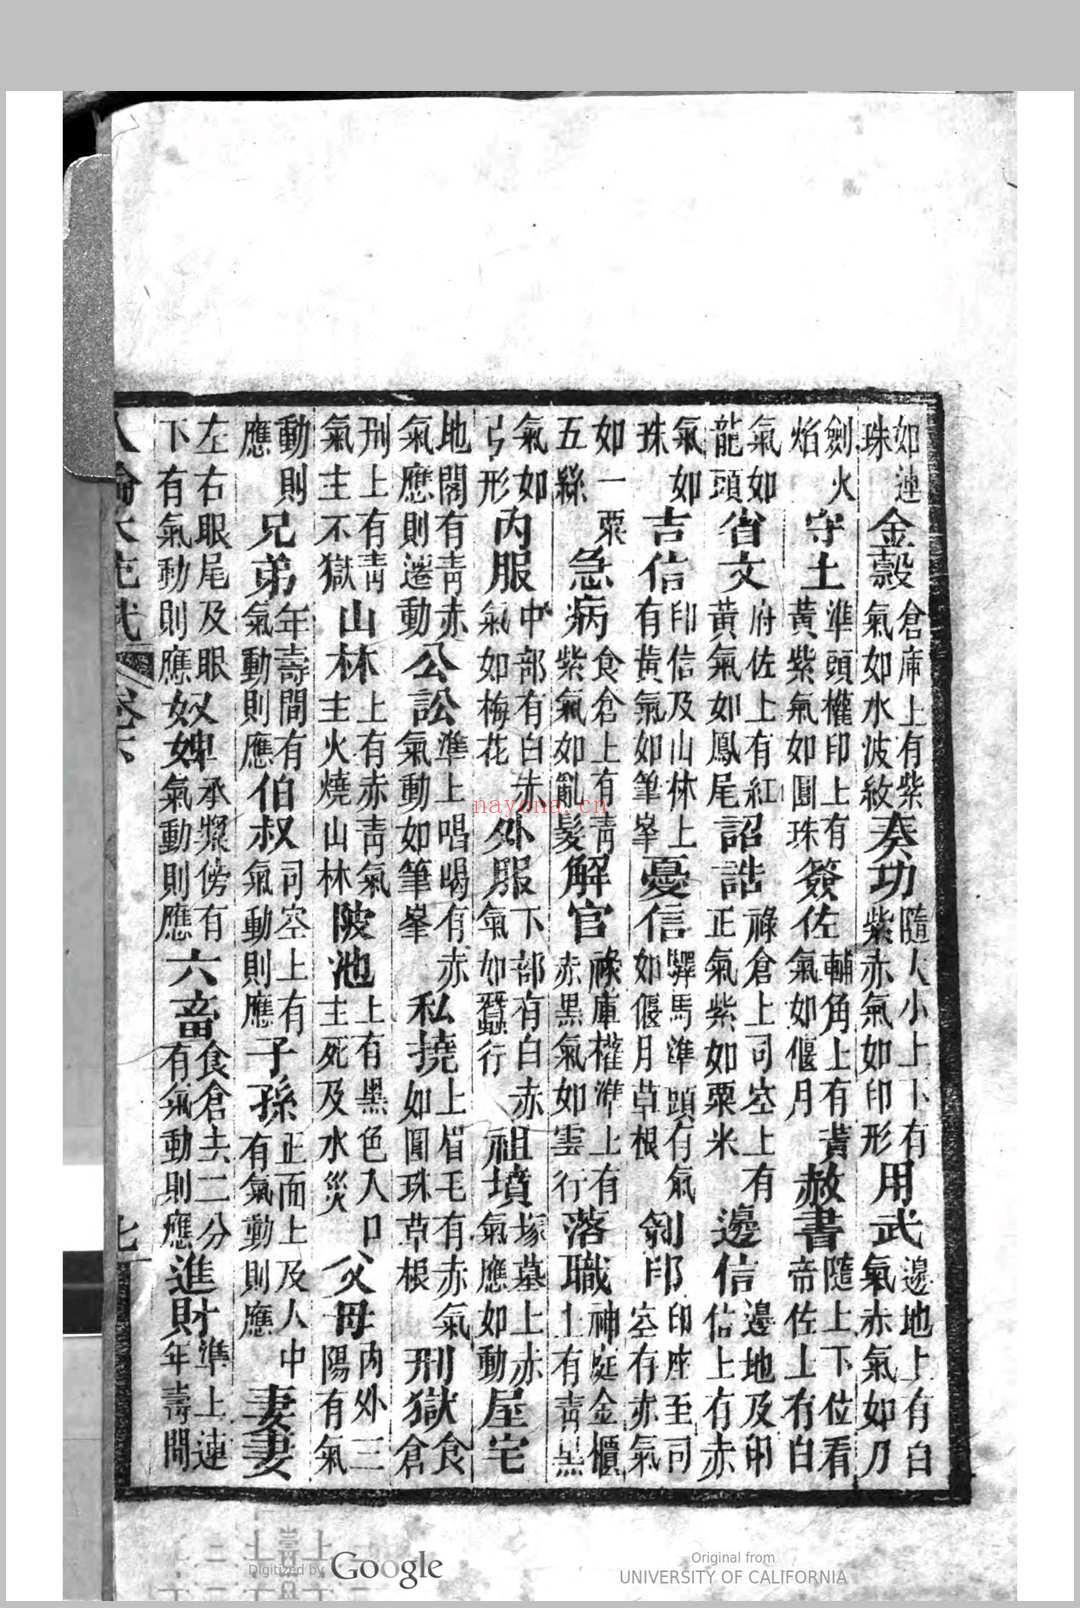 如連珠金穀倉庫上有紫氣如水波紋奏功隨人小上下有紫赤氣如印形用武邊地上有白氣赤氣如刀
劍火焰守土準頭權印上有黃紫氣如圓珠簽佐輔角上有黃氣如偃月赦書隨上下位看帝佐上有白
氣如龍頭省文府佐上有紅黃氣如鳳尾詔誥祿倉上司空上有正氣紫如粟米邊信邊地及印信上有赤
氣如珠吉信印信及山林上有黃氣如筆峯憂信驛馬準頭有氣如偃月草根劄印印座至司空有赤氣
如一粟五絲急病食倉上有青紫氣如亂髮解官祿庫權準上有赤黑氣如雲行落職神庭金櫃上有青黑
氣如弓形內服中部有白赤氣如梅花外服下部有白赤氣如蠶行祖墳塚墓上赤氣應如動屋宅
地閣有青赤氣應則遷動公訟準上唱喝有赤氣動如筆峯私撓上眉毛有赤氣如圓珠草根刑獄食倉
刑上有青氣主不獄山林上有赤青氣主火燒山林陂池上有黑色入口主死及水災父母內外三陽有氣
動則應兄弟年壽間有氣動則應伯叔司空上有氣動則應子孫正面上及人中有氣動則應妻妻
左右眼尾及眼下有氣動則應奴婢承漿傍有氣動則應六畜食倉共二分有氣動則應進財準上連年壽間
卷六
nayona.cn
Digitized by Google
Original from
UNIVERSITY OF CALIFORNIA